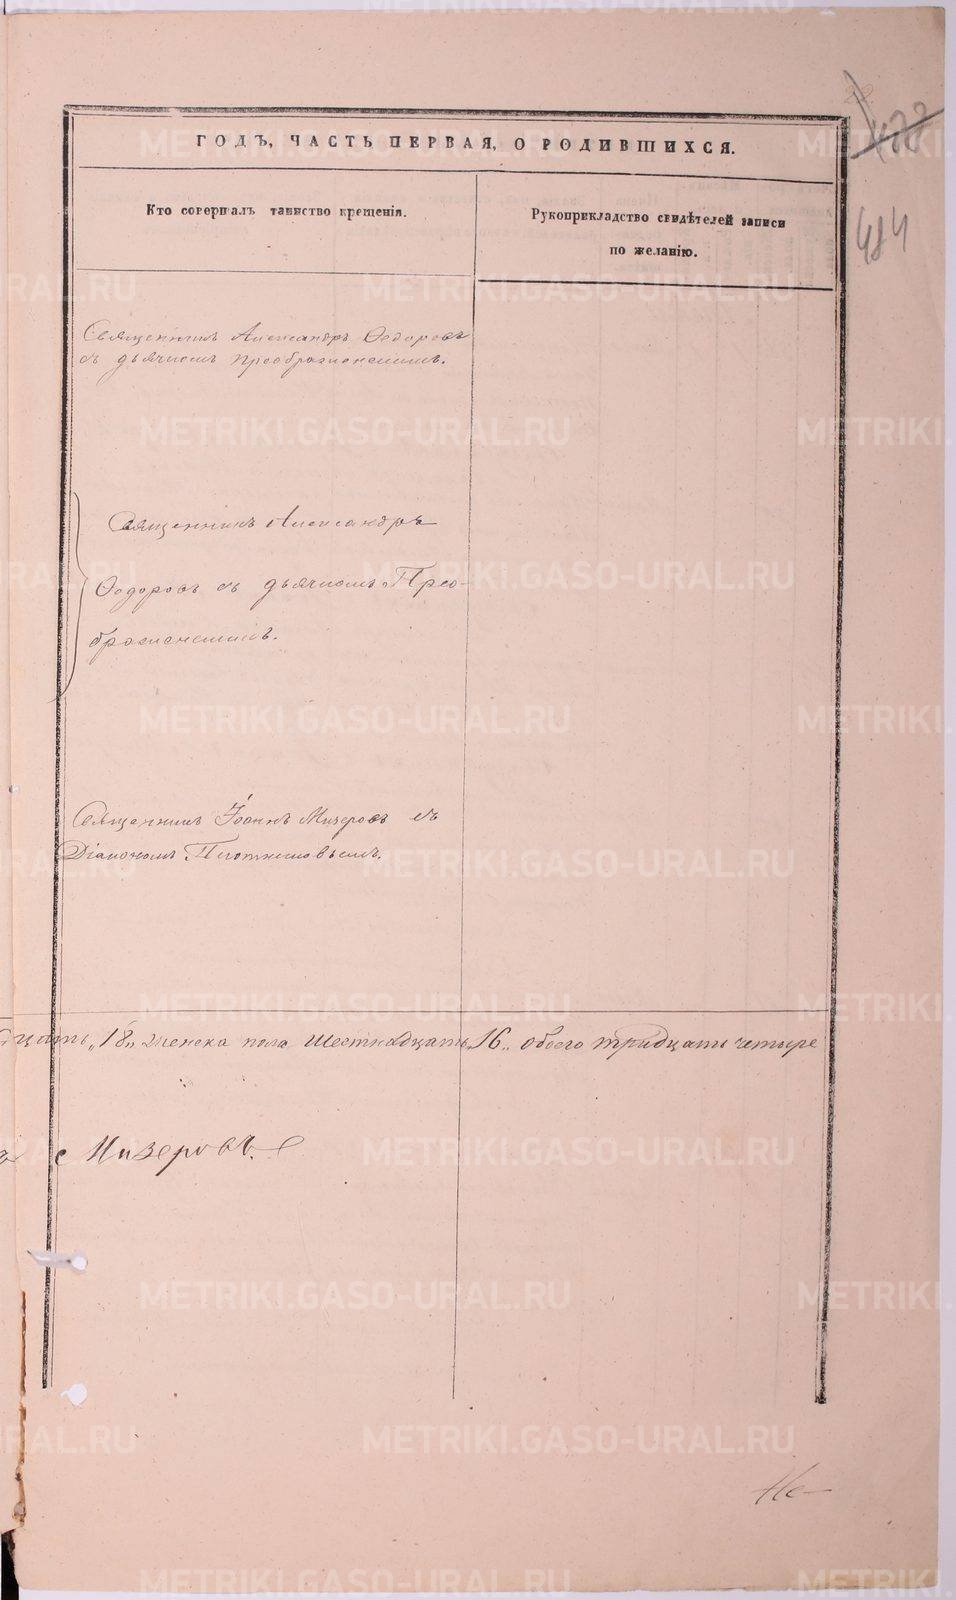 488
484
ГОДЪ, ЧАСТЬ ПЕРВАЯ, О РОДИВШИХСЯ.
Кто совершалъ таинство крещенія.
Рукоприкладство свидѣтелей записи
по желанію.
Священникъ Александръ Ѳедоровъ
съ дьячкомъ Преображенскимъ.
Священникъ Александръ
Ѳедоровъ съ дьячкомъ Прео-
браженскимъ.
Священникъ Іоаннъ Мизеровъ съ
Діакономъ Плотниковымъ.
цать „18„ женска пола шестнадцать „16„ обоего тридцать четыре
Мизеровъ
METRIKI.GASO-URAL.RU